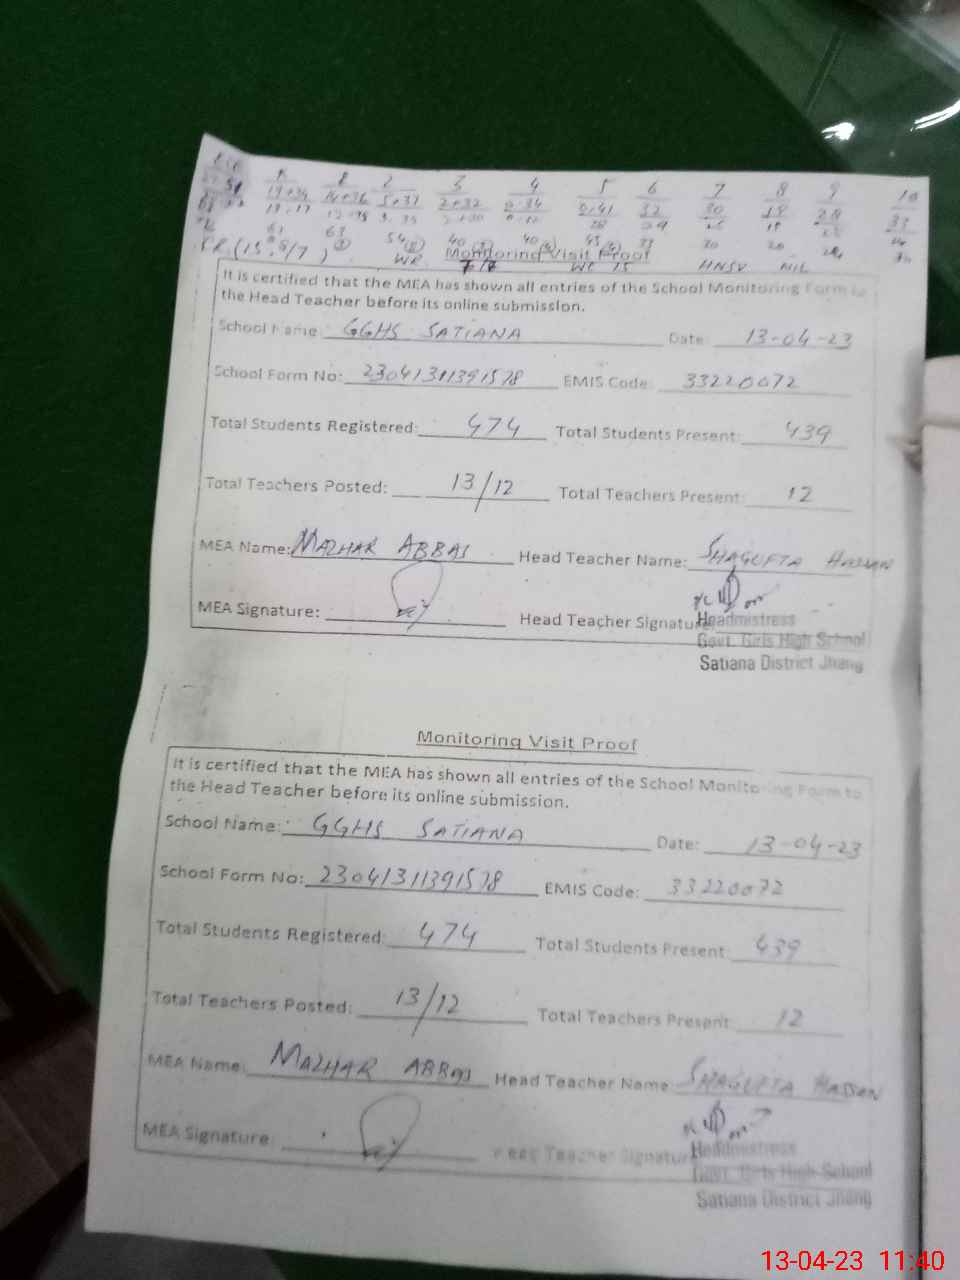 1 2 3 4 5 6 7 8 9 10
19+34 14+36 5+37 2+32 0.34 0.41 32 30 19 28 33
61 63 54 40 40 45
WR. 7/7 WC 15 HNSV NIL
Monitoring Visit Proof
It is certified that the MEA has shown all entries of the School Monitoring Form to
the Head Teacher before its online submission.
School Name: GGHS SATIANA Date: 13-04-23
School Form No: 23041311391578 EMIS Code: 33220072
Total Students Registered: 474 Total Students Present: 439
Total Teachers Posted: 13/12 Total Teachers Present: 12
MEA Name: MAZHAR ABBAS Head Teacher Name: SHAGUFTA HASSAN
MEA Signature: Head Teacher Signature:
Headmistress
Govt. Girls High School
Satiana District Jhang
Monitoring Visit Proof
It is certified that the MEA has shown all entries of the School Monitoring Form to
the Head Teacher before its online submission.
School Name: GGHS SATIANA Date: 13-04-23
School Form No: 23041311391578 EMIS Code: 33220072
Total Students Registered: 474 Total Students Present: 439
Total Teachers Posted: 13/12 Total Teachers Present: 12
MEA Name: MAZHAR ABBAS Head Teacher Name: SHAGUFTA HASSAN
MEA Signature: Head Teacher Signature
Headmistress
Govt. Girls High School
Satiana District Jhang
13-04-23 11:40